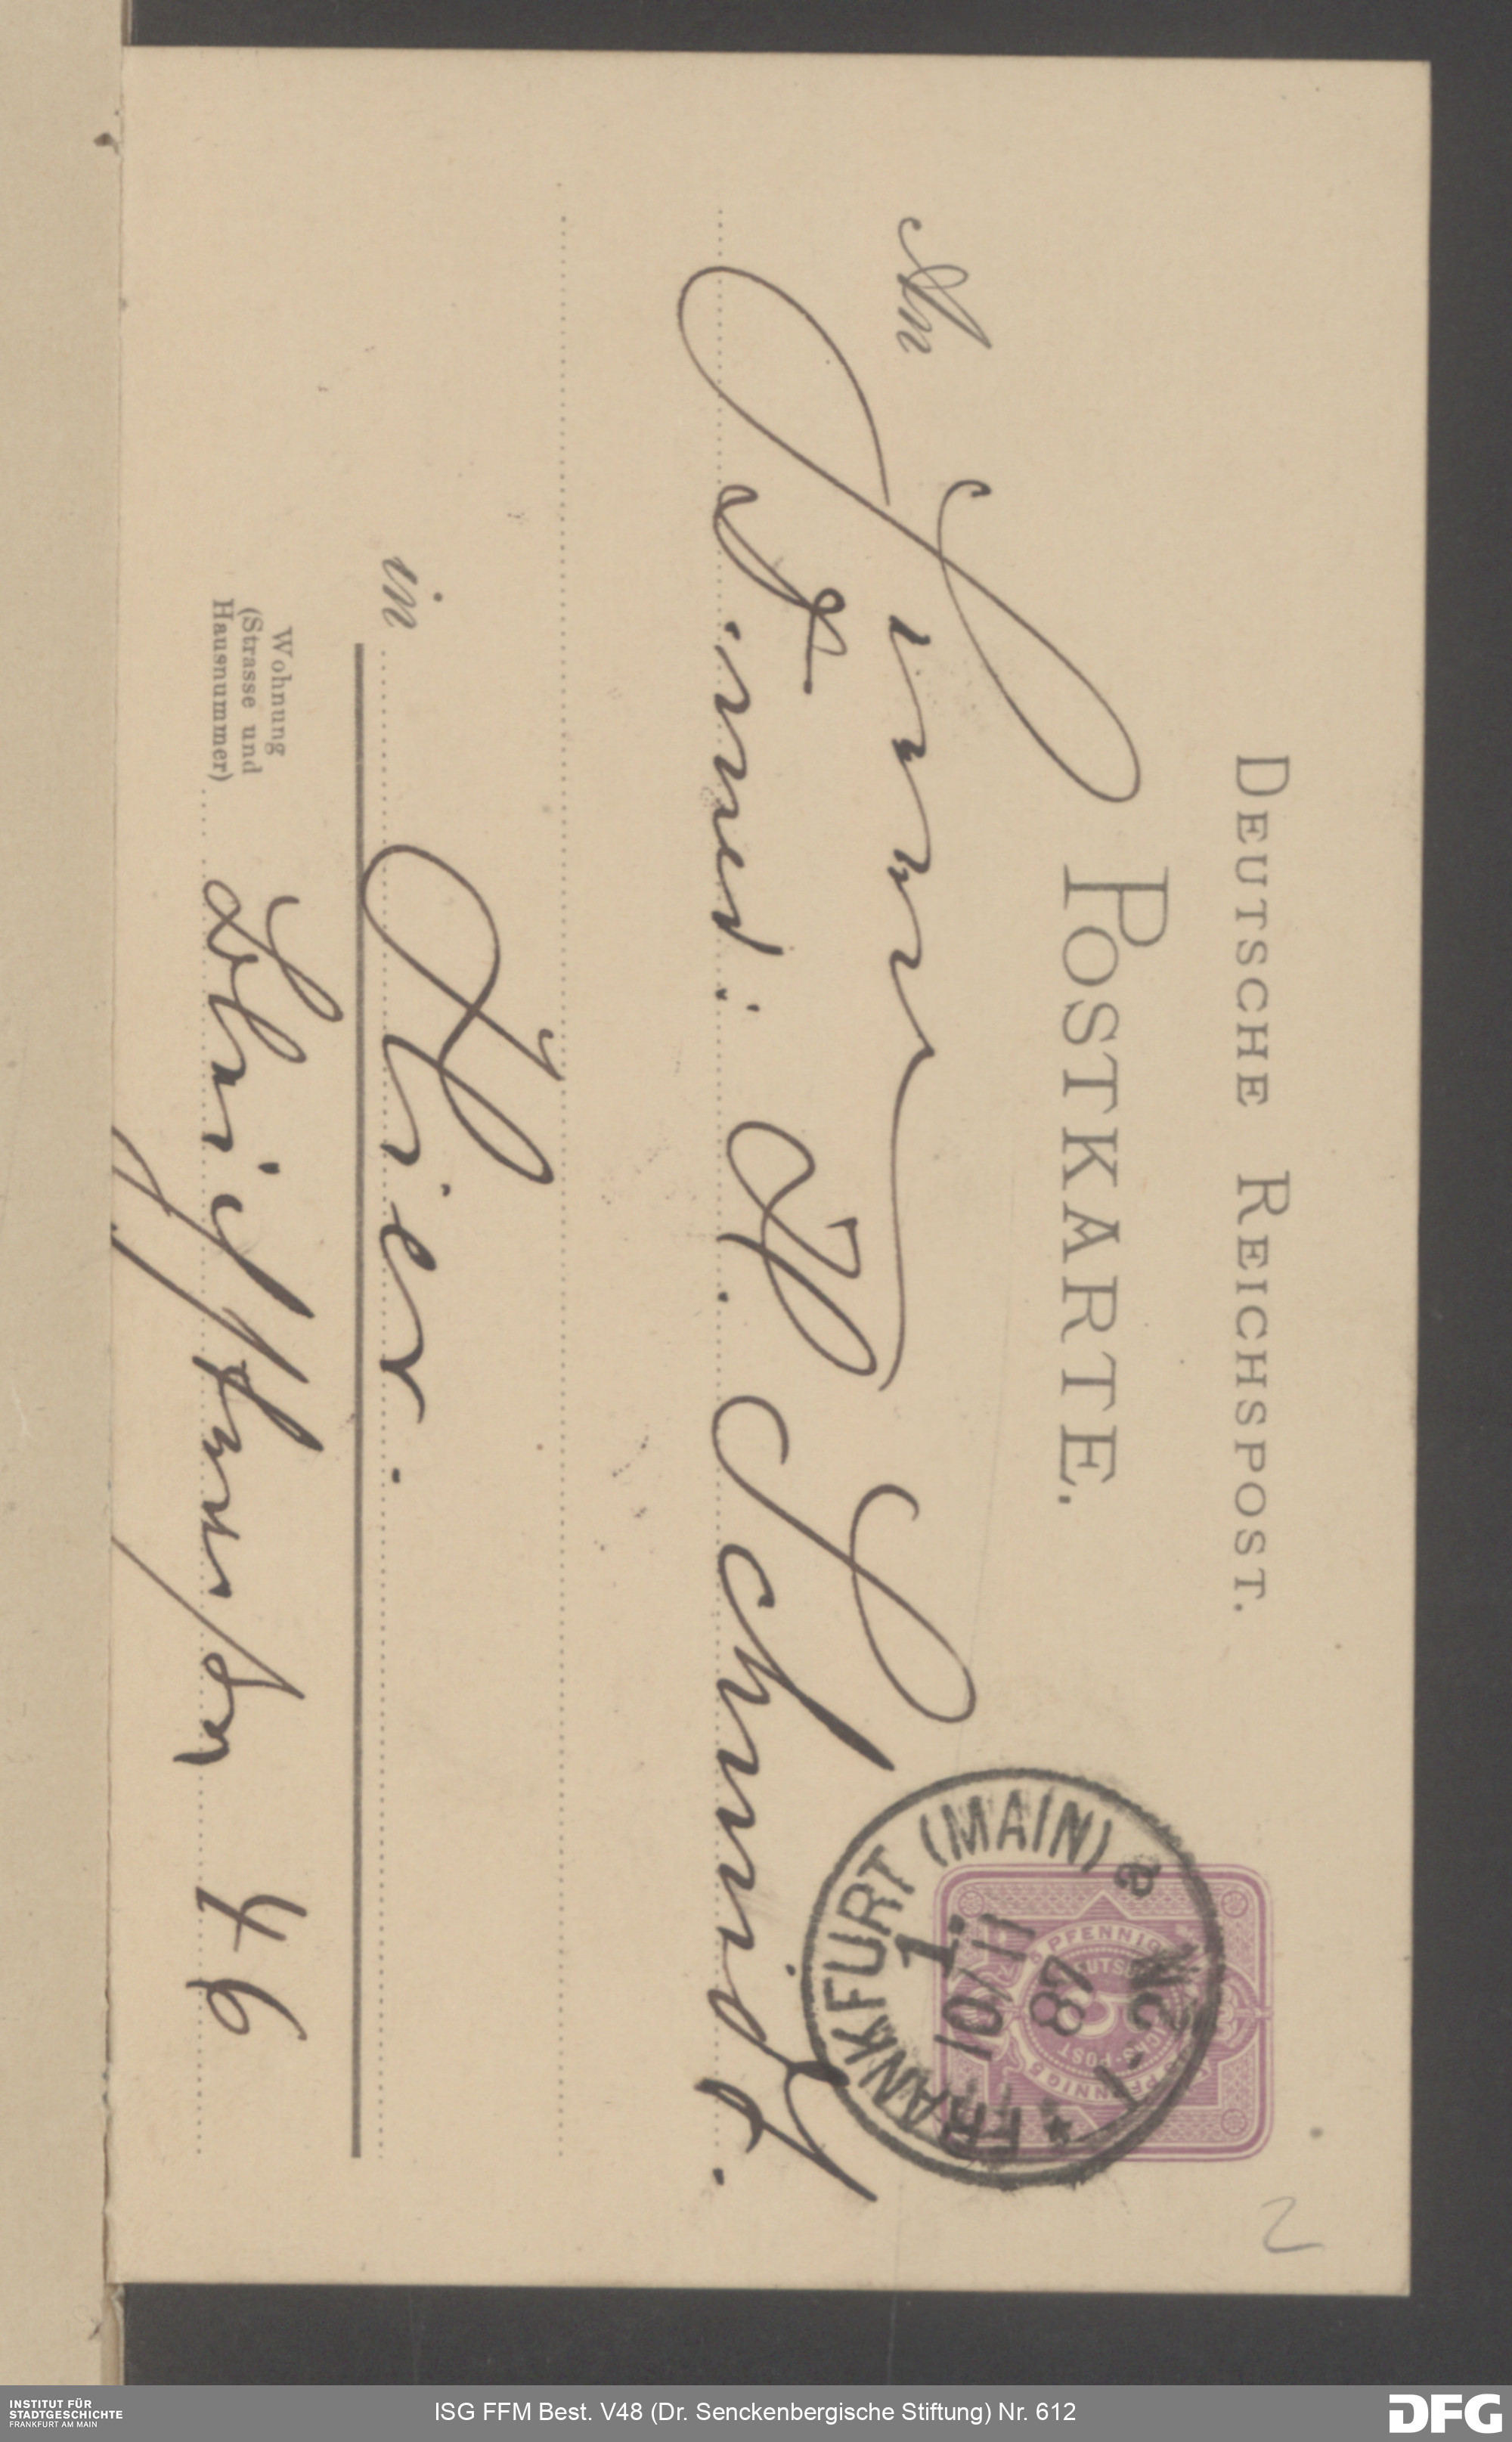 DEUTSCHE REICHSPOST.
POSTKARTE.
FRANKFURT (MAIN) a
1.
10/11
87
1-2N.
FRA
5 PFENNIG 5 PFENNIG
An Herrn
Dr. med: H. Schmidt.
in Hier.
Wohnung
(Strasse und
Hausnummer)
46
2
INSTITUT FÜR
STADTGESCHICHTE
FRANKFURT AM MAIN
ISG FFM Best. V48 (Dr. Senckenbergische Stiftung) Nr. 612
DFG